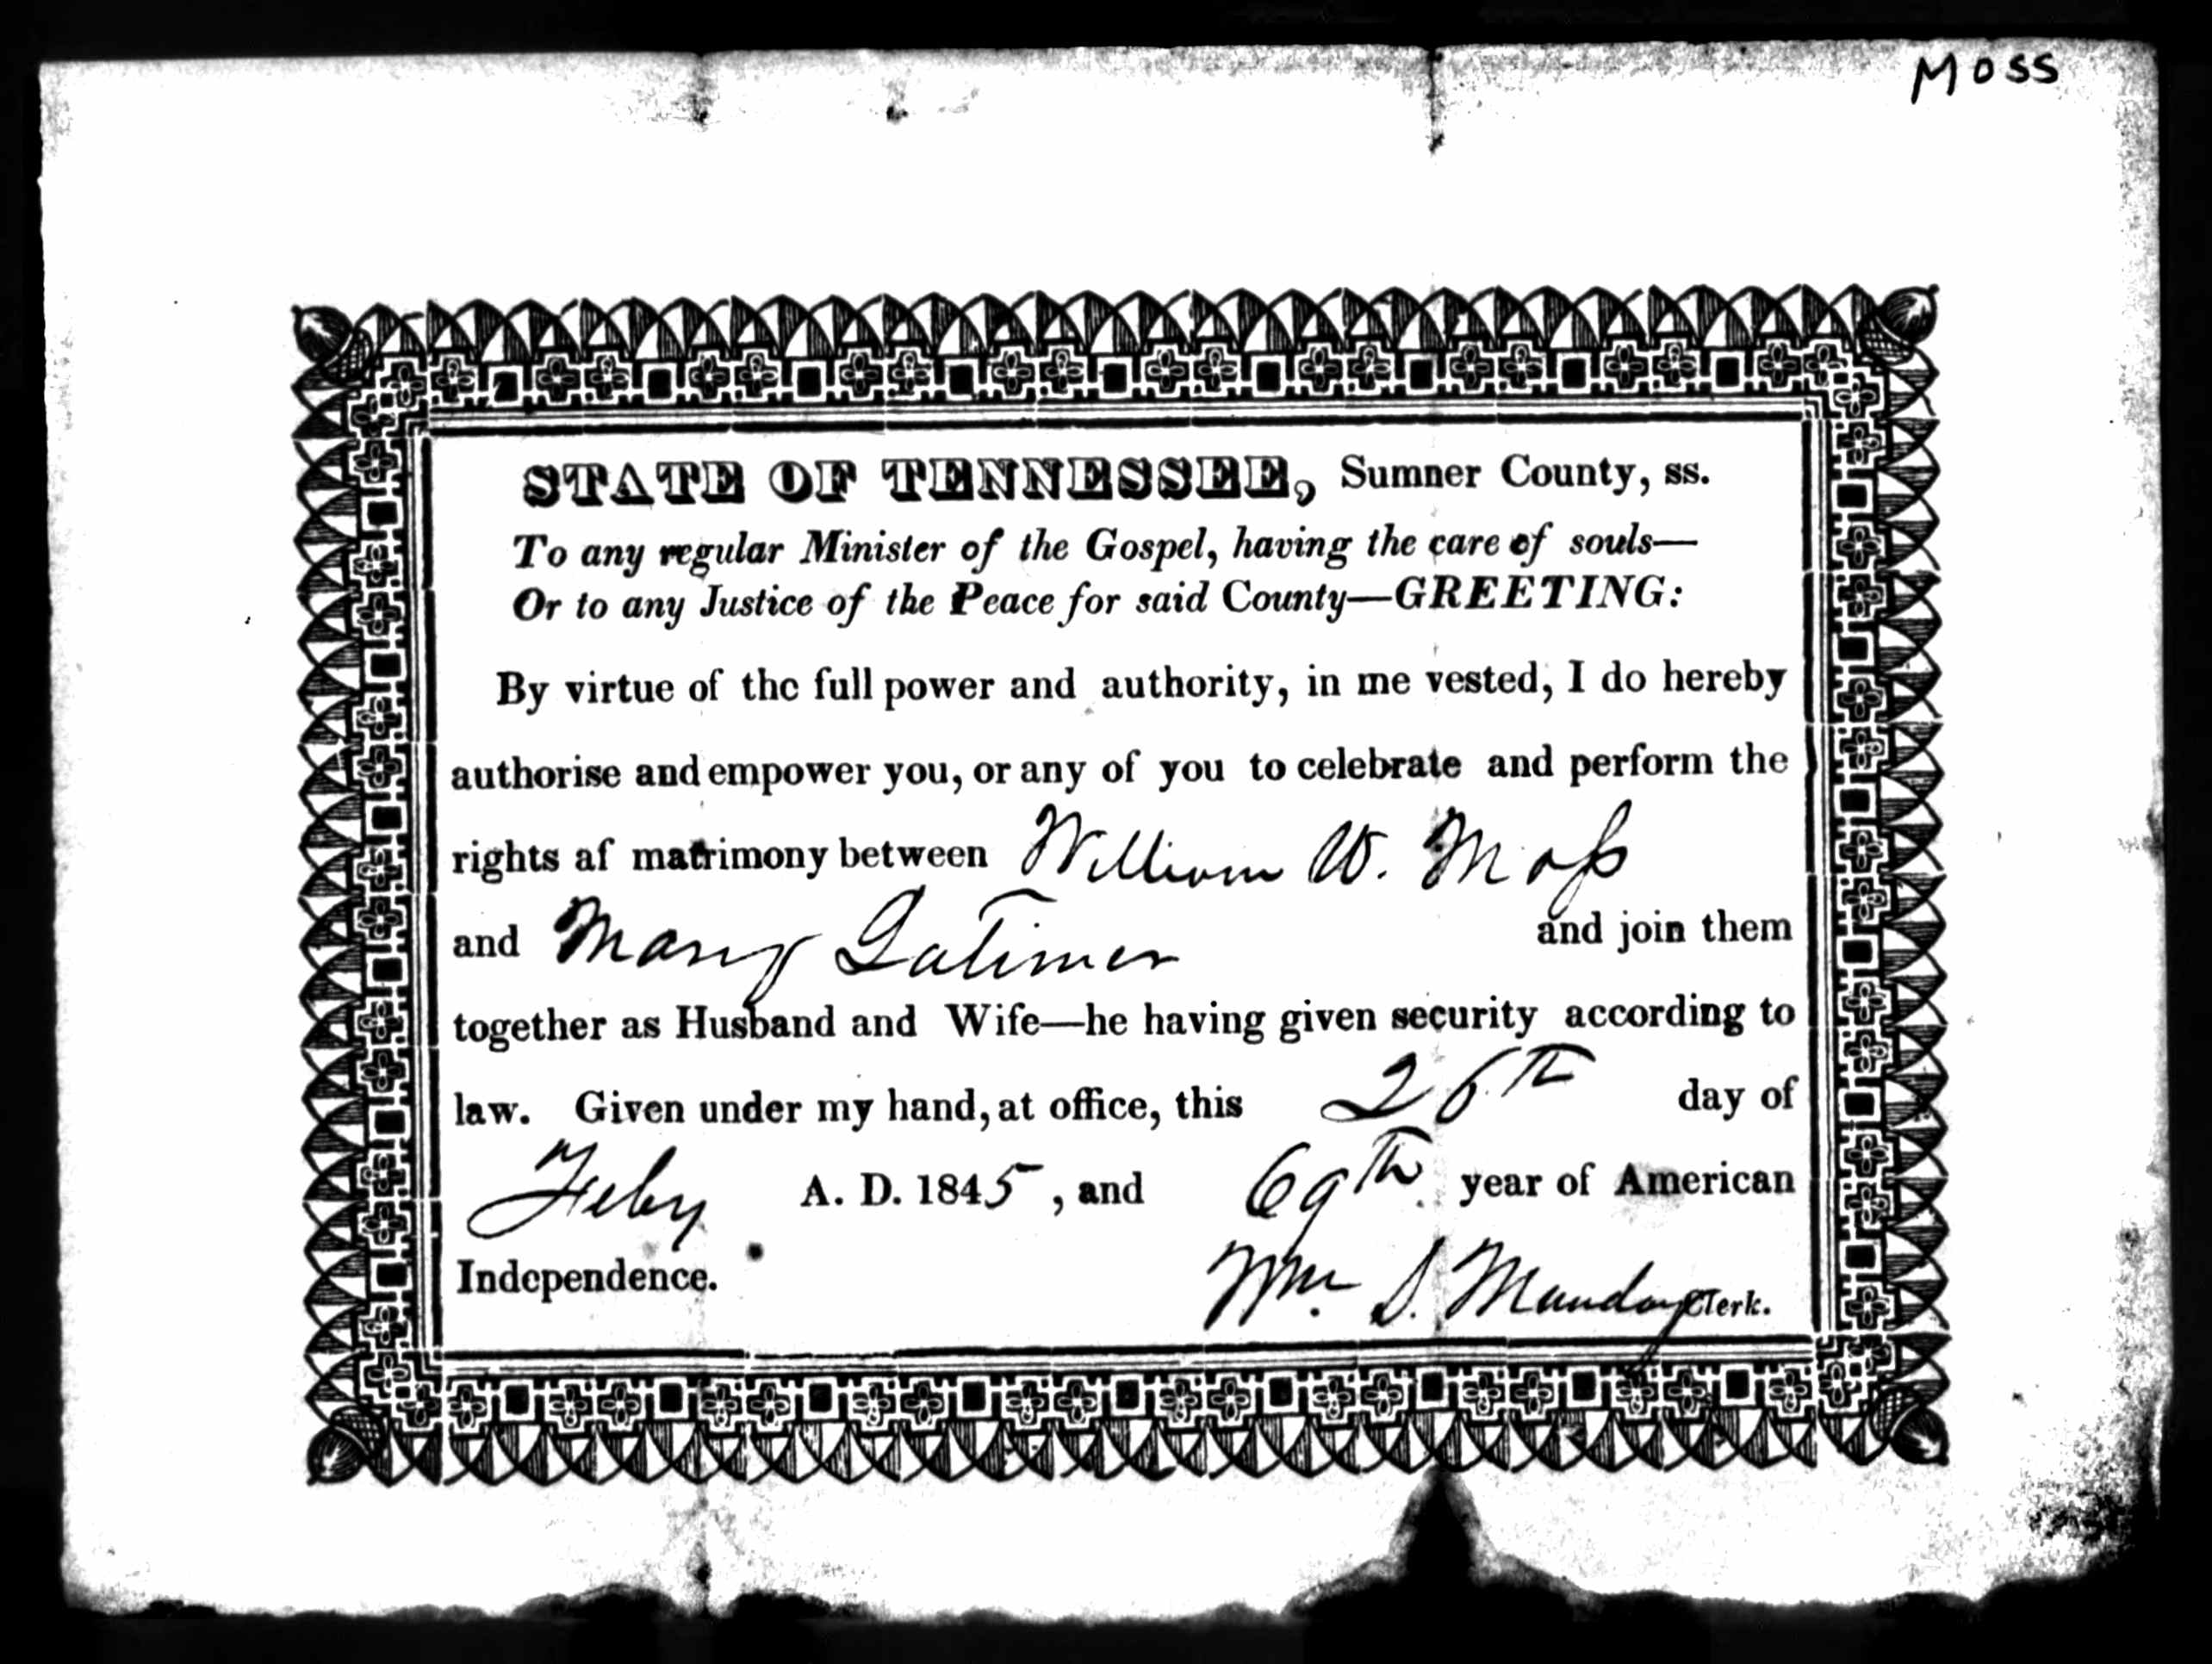 MOSS
STATE OF TENNESSEE, Sumner County, ss.
To any regular Minister of the Gospel, having the care of souls—
Or to any Justice of the Peace for said County—GREETING:
By virtue of the full power and authority, in me vested, I do hereby
authorise and empower you, or any of you to celebrate and perform the
rights af matrimony between William W. Moss
and Mary Latimer and join them
together as Husband and Wife—he having given security according to
law. Given under my hand, at office, this 26th day of
Feby A. D. 1845, and 69th year of American
Independence. Wm. S. Munday Clerk.